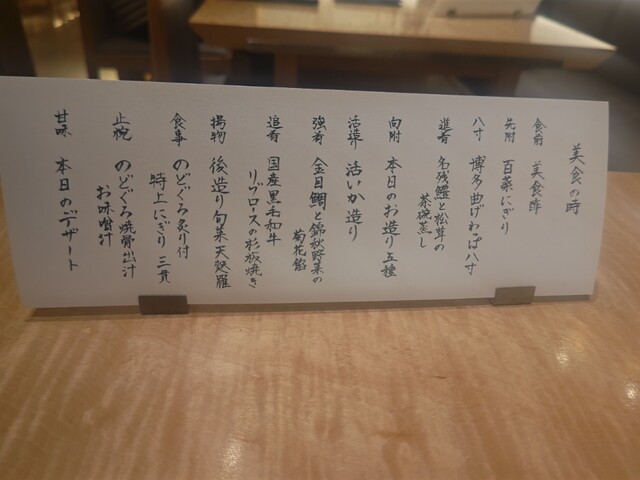 美食の時
食前 美食酢
先附 百菜にぎり
八寸 博多曲げわっぱ八寸
進肴 名残鱧と松茸の
茶碗蒸し
向附 本日のお造り五種
活造り 活いか造り
強肴 金目鯛と錦秋野菜の
菊花餡
追肴 国産黒毛和牛
リブロースの杉板焼き
揚物 後造り旬菜天麩羅
食事 のどぐろ炙り付
特上にぎり 三貫
止椀 のどぐろ焼骨出汁
お味噌汁
甘味 本日のデザート